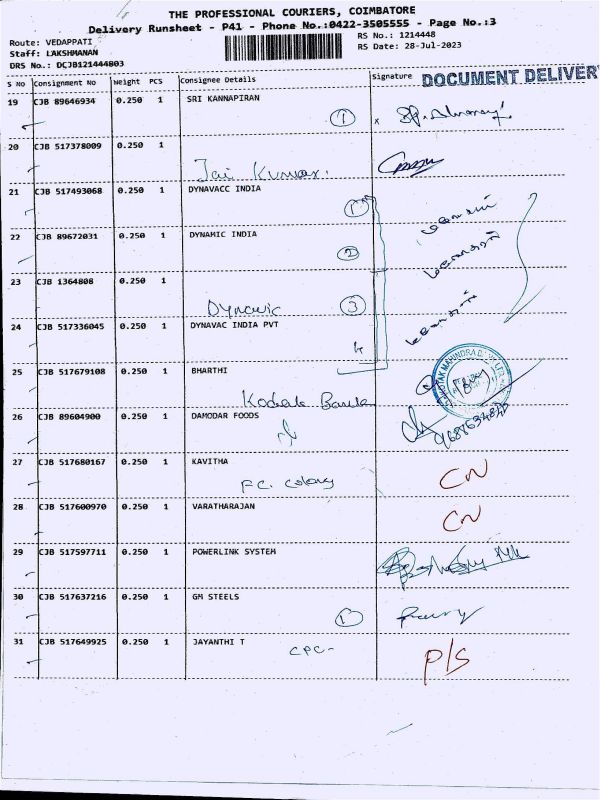 THE PROFESSIONAL COURIERS, COIMBATORE
Delivery Runsheet - P41 - Phone No.:0422-3505555 - Page No.:3
Route: VEDAPPATI
RS No.: 1214448
Staff: LAKSHMANAN
RS Date: 28-Jul-2023
DRS No.: DCJB121444803
S No Consignment No Weight PCS Consignee Details Signature DOCUMENT DELIVER
19 CJB 89646934 0.250 1 SRI KANNAPIRAN
1 x
20 CJB 517378009 0.250 1
Jai Kumar.
21 CJB 517493068 0.250 1 DYNAVACC INDIA
1
22 CJB 89672031 0.250 1 DYNAMIC INDIA
2
23 CJB 1364808 0.250 1
Dynamic 3
24 CJB 517336045 0.250 1 DYNAVAC INDIA PVT
4
25 CJB 517679108 0.250 1 BHARTHI
KOTAK MAHINDRA
Kodak Bank
26 CJB 89604900 0.250 1 DAMODAR FOODS
27 CJB 517680167 0.250 1 KAVITHA
F.C. Colony CN
28 CJB 517600970 0.250 1 VARATHARAJAN
CN
29 CJB 517597711 0.250 1 POWERLINK SYSTEM
30 CJB 517637216 0.250 1 GM STEELS
1
31 CJB 517649925 0.250 1 JAYANTHI T
CPC- P/S